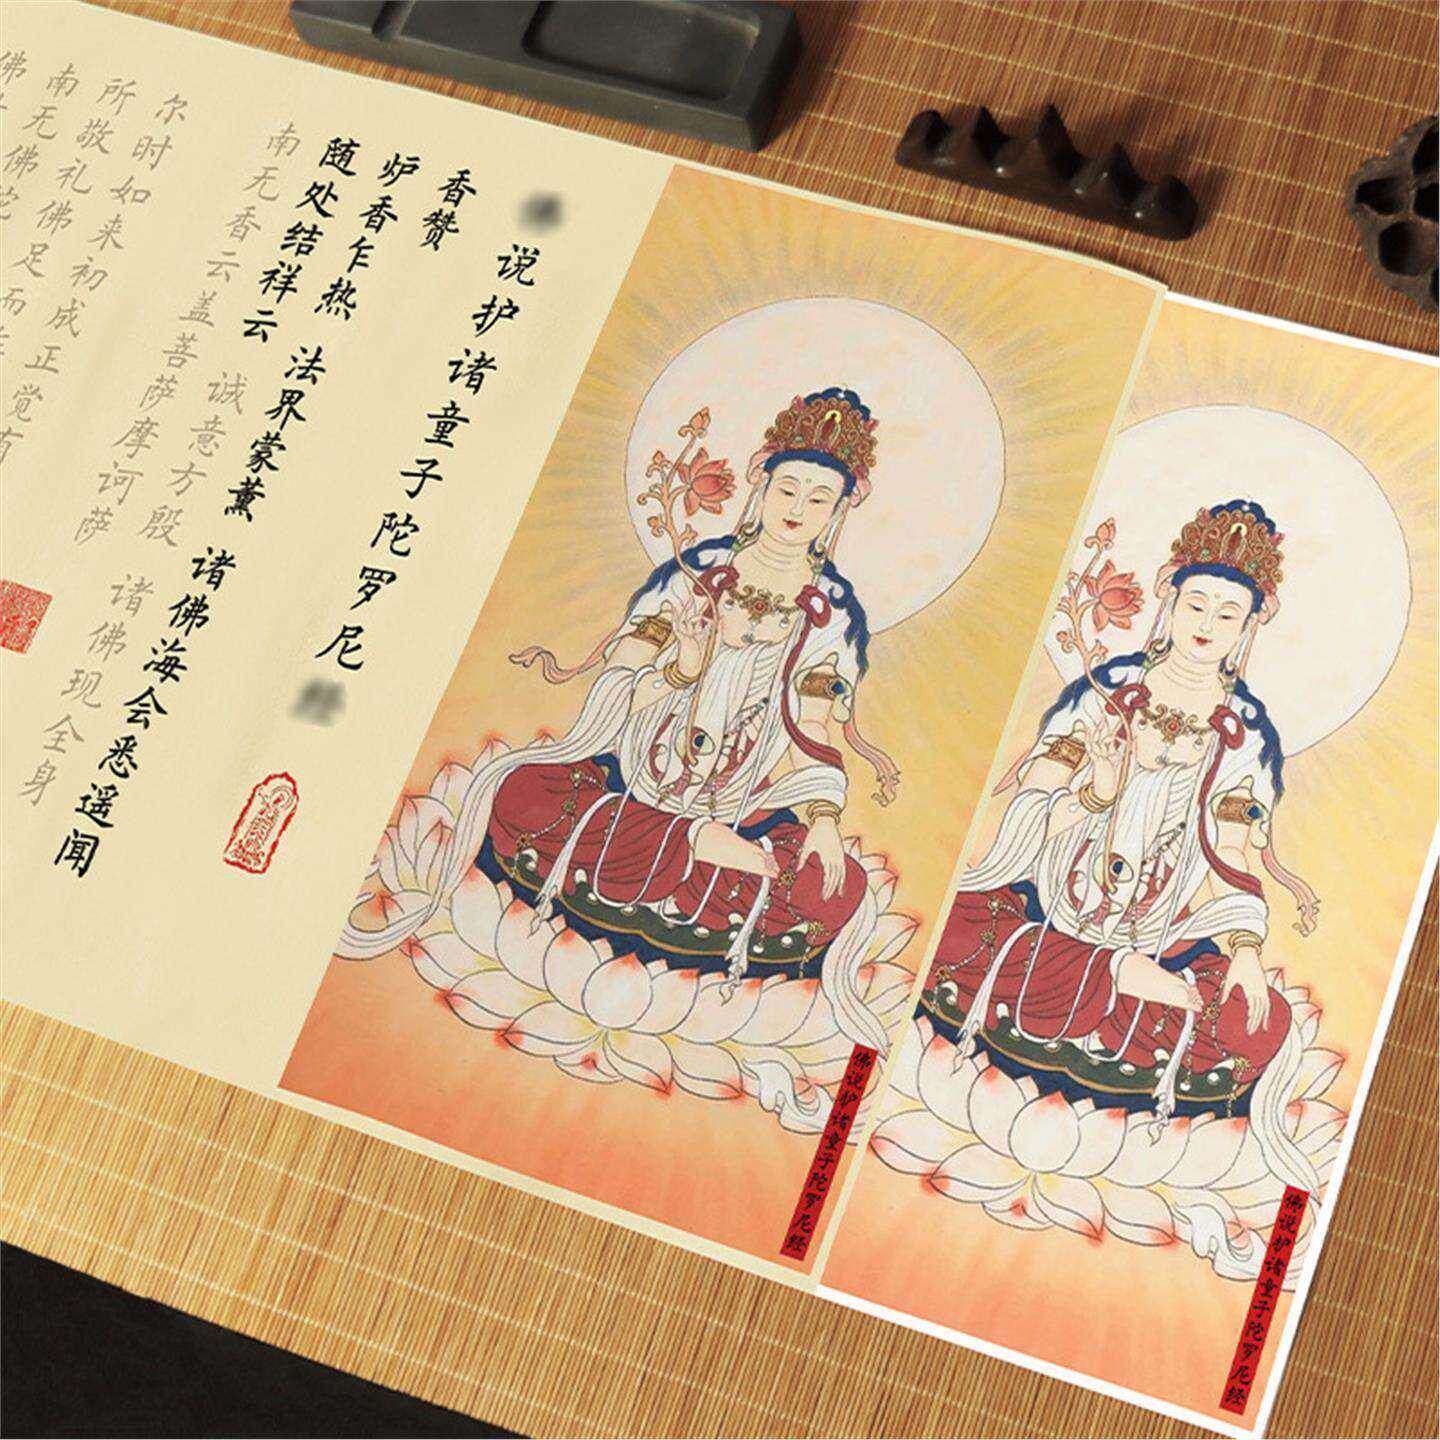 佛说护诸童子陀罗尼经
佛说护诸童子陀罗尼经
说护诸童子陀罗尼
香赞
炉香乍热 法界蒙薰 诸佛海会悉遥闻
随处结祥云 诚意方殷 诸佛现全身
南无香云盖菩萨摩诃萨
尔时如来初成正觉有
所敬礼佛足而
南无佛陀
佛